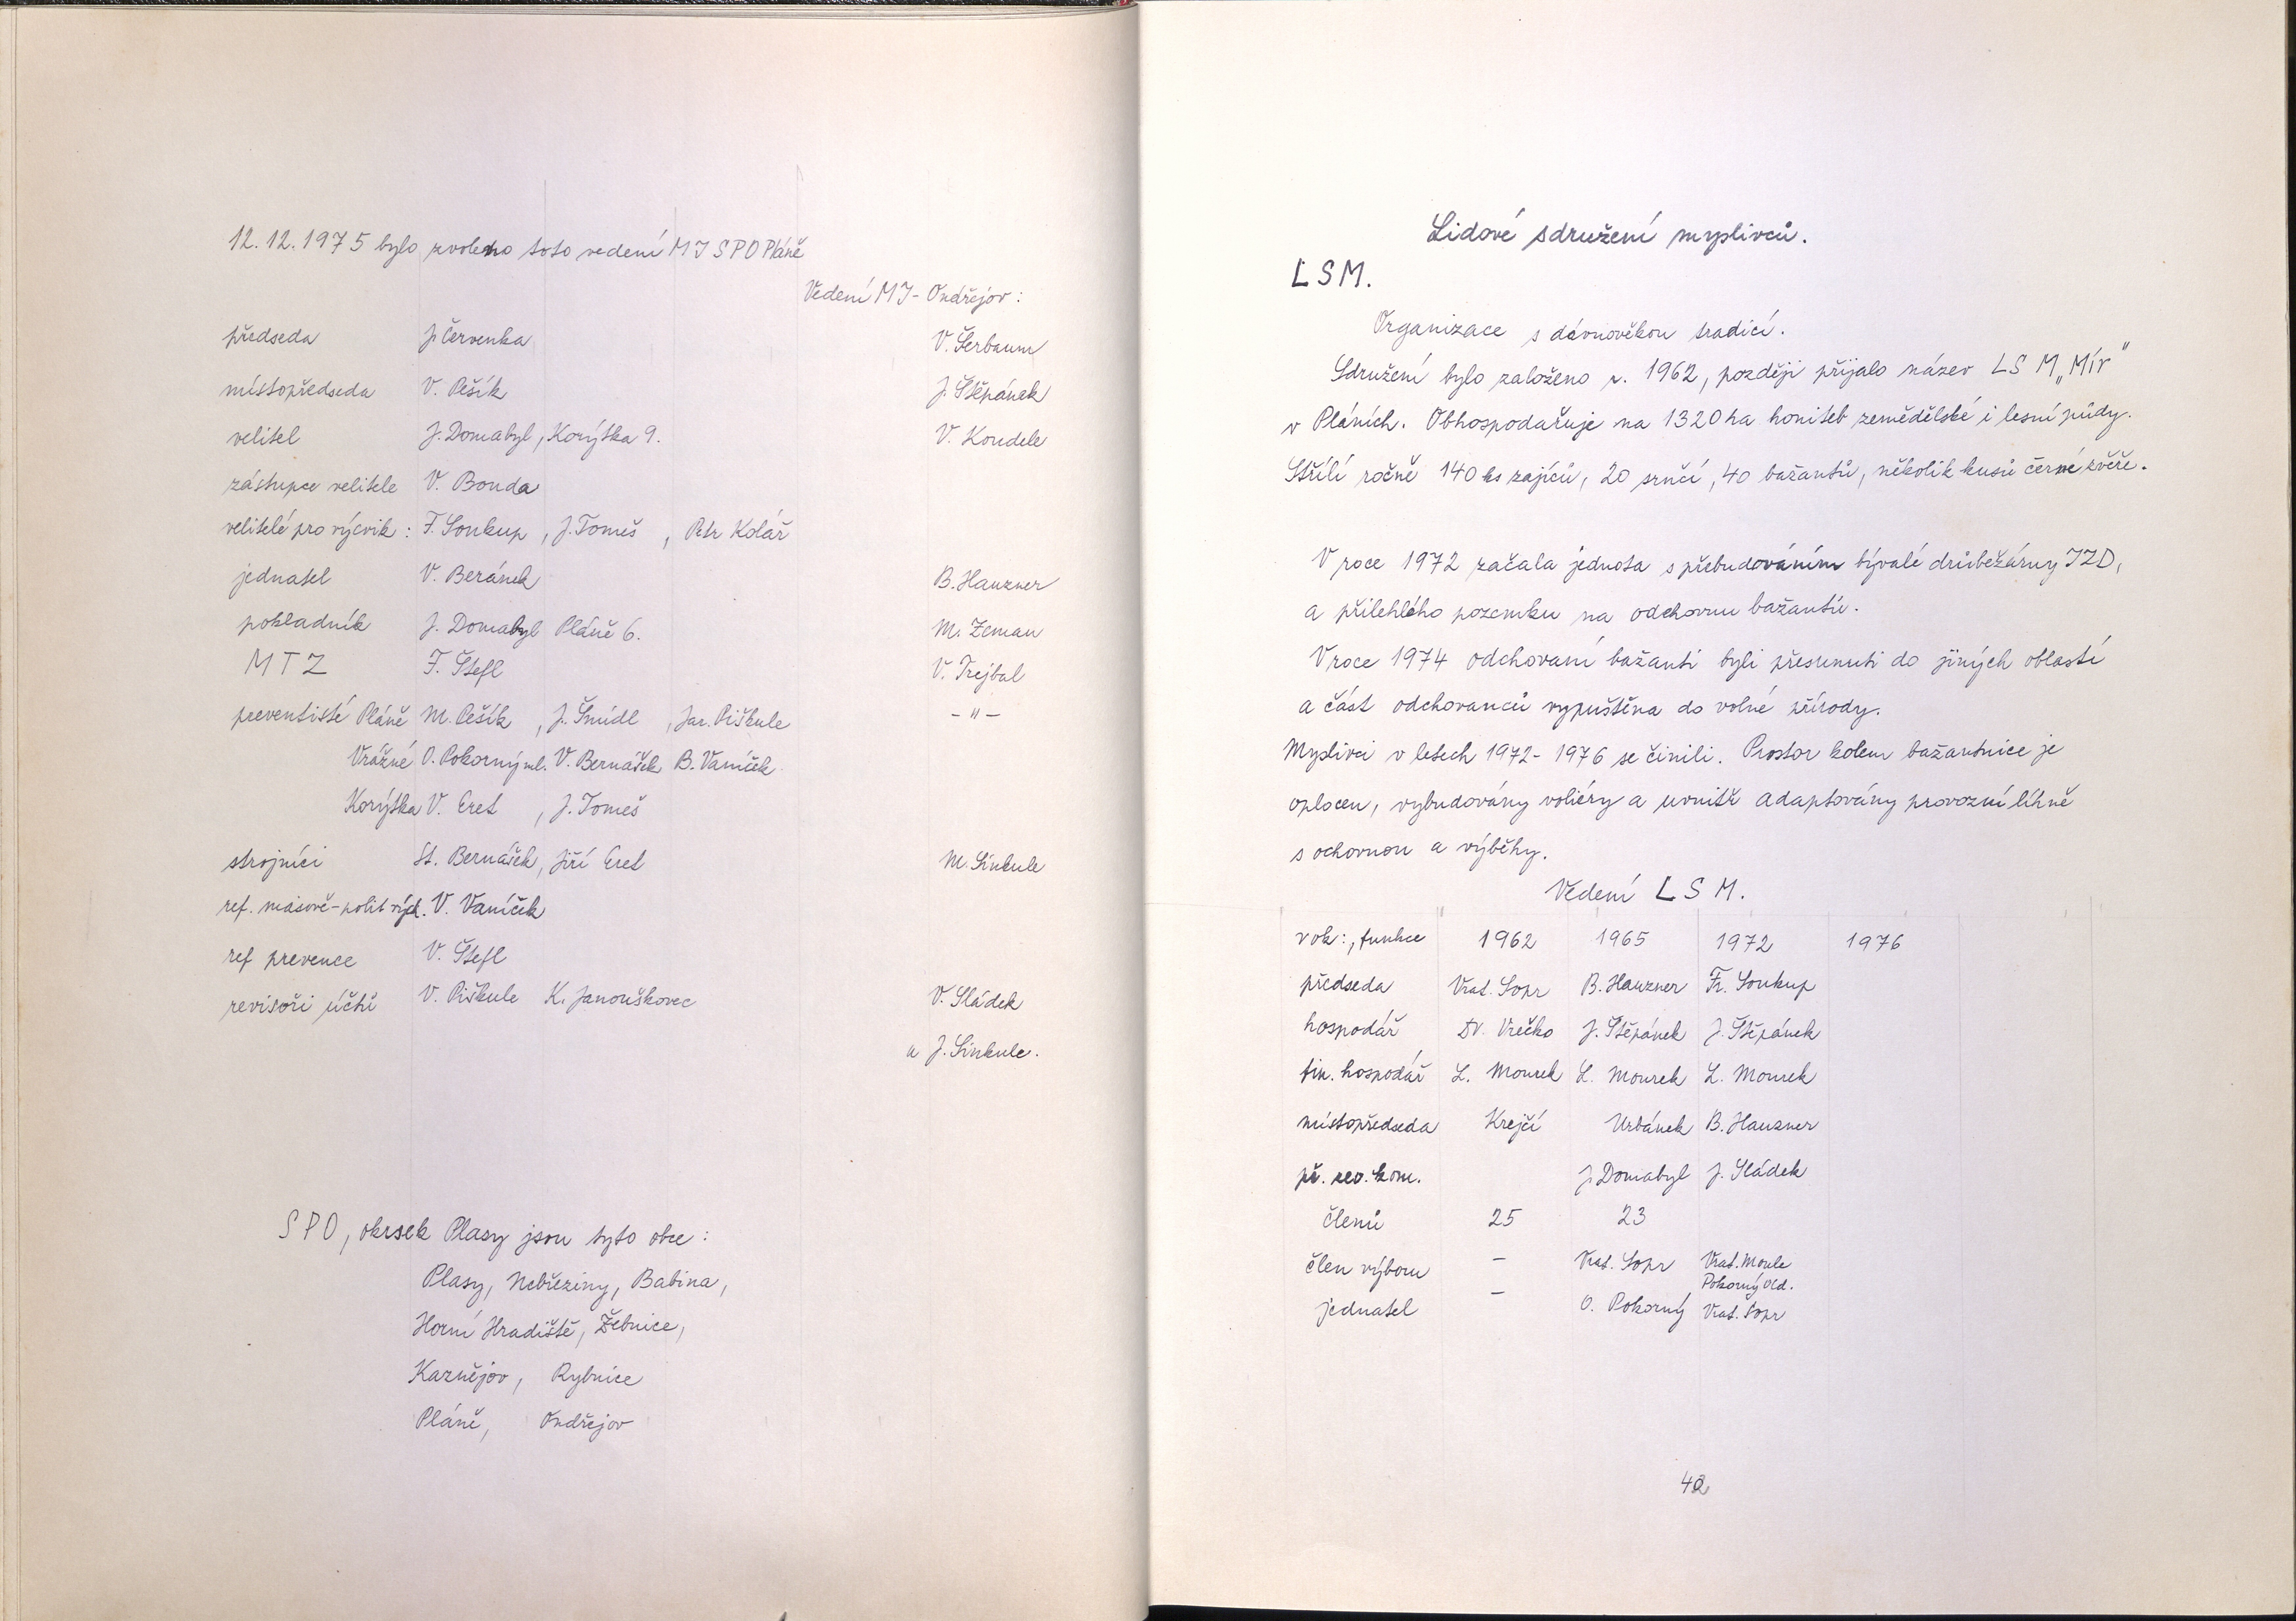 12.12.1975 bylo zvoleno toto vedení MJ SPO Pláně
Vedení MJ - Ondřejov:
předseda J. Červenka V. Šerbaum
místopředseda V. Pešík J. Štěpánek
velitel J. Domabyl, Korýtka 9. V. Koudele
zástupce velitele V. Bouda
velitelé pro výcvik: F. Soukup, J. Tomeš, Petr Kolář
jednatel V. Beránek B. Hauzner
pokladník J. Domabyl Pláně 6. M. Zeman
MTZ F. Štefl V. Trejbal
preventisté Pláně M. Pešík, J. Šmídl, Jar. Piškule - " -
Vrážné O. Pokorný ml. V. Bernášek B. Vaníček
Korýtka V. Eret, J. Tomeš
strojníci St. Bernášek, Jiří Eret M. Sinkule
ref. masově-polit vých. V. Vaníček
ref prevence V. Štefl
revisoři účtů V. Piškule K. Janouškovec V. Sládek
a J. Sinkule.
SPO, okrsek Plasy jsou tyto obce:
Plasy, Nebřeziny, Babina,
Horní Hradiště, Žebnice,
Kaznějov, Rybnice
Pláně, Ondřejov
Lidové sdružení myslivců.
LSM.
Organizace s dávnověkou tradicí.
Sdružení bylo založeno r. 1962, později přijalo název LSM „Mír"
v Pláních. Obhospodařuje na 1320 ha honiteb zemědělské i lesní půdy.
Střílí ročně 140 ks zajíců, 20 srnčí, 40 bažantů, několik kusů černé zvěře.
V roce 1972 začala jednota s přebudováním bývalé drůbežárny JZD,
a přilehlého pozemku na odchovnu bažantů.
V roce 1974 odchovaní bažanti byli přesunuti do jiných oblastí
a část odchovanců vypuštěna do volné přírody.
Myslivci v letech 1972-1976 se činili. Prostor kolem bažantnice je
oplocen, vybudovány voliéry a uvnitř adaptovány provozní líhně
s ochovnou a výběhy.
Vedení LSM.
rok:, funkce 1962 1965 1972 1976
předseda Vrat. Sopr B. Hauzner Fr. Soukup
hospodář Dr. Vrečko J. Štěpánek J. Štěpánek
fin. hospodář L. Mourek L. Mourek L. Mourek
místopředseda Krejčí Urbánek B. Hauzner
př. rev. kom. J. Domabyl J. Sládek
členů 25 23
člen výboru - Vrat. Sopr Vrat. Moule
Pokorný Old.
jednatel - O. Pokorný Vrat. Sopr
42